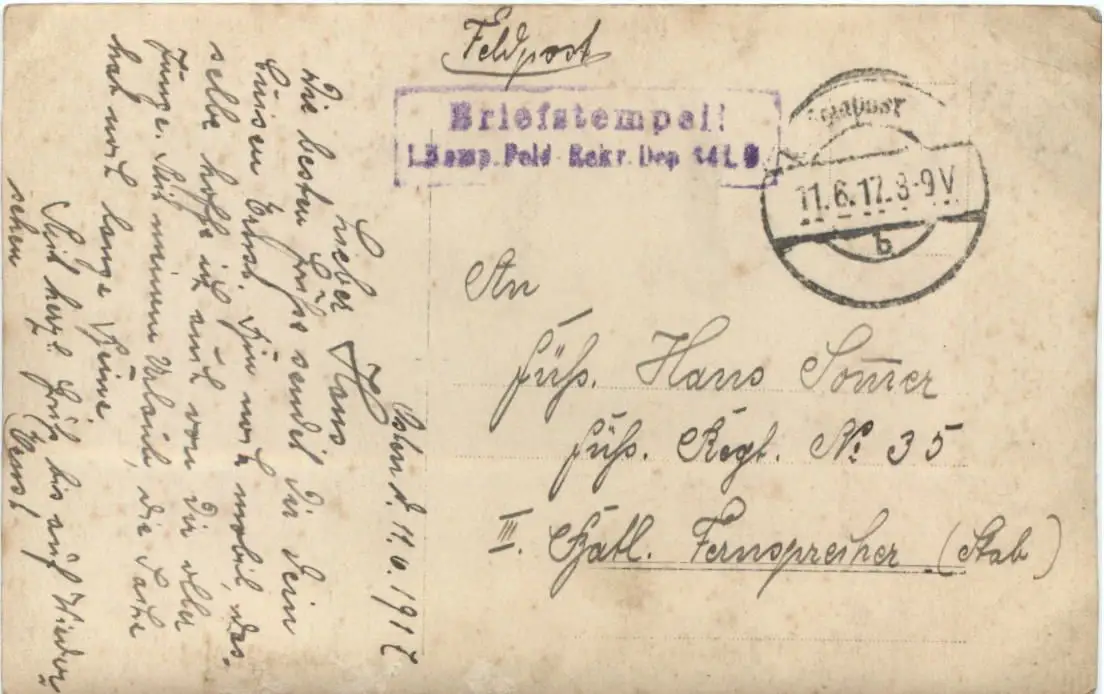 Feldpost
Briefstempel!
1. Komp. Feld-Rekr. Dep.
Feldpost
11.6.17. 8-9 V
b
An
Füs. Hans Sommer
Füs. Regt. No. 35
III. Batl. Fernspreiher (Stab)
d. 11.6.1917
Lieber Hans
Die besten Grüße sendet Dir Dein
Ernst. Bin noch mobil, das-
selbe hoffe ich auch von Dir alter
Junge. Mit meinem Urlaub, die Sache
hat noch lange Beine
Mit herzl. Gruß bis auf Wieder-
sehen
Ernst